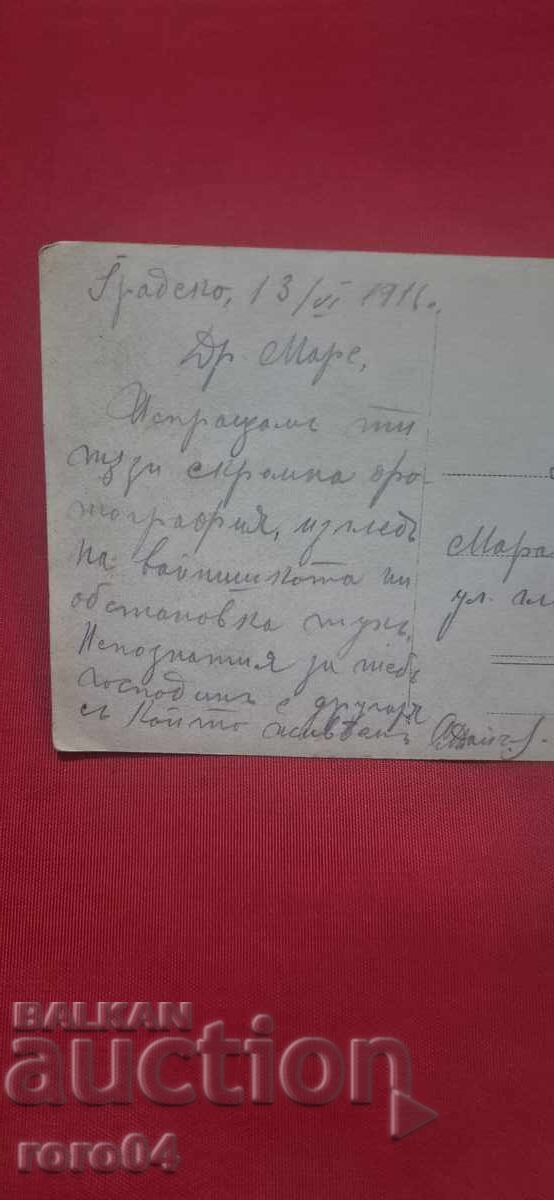 Градско, 13/VI 1916.
Др. Маре,
Испращамъ ти
тузи скромна фо-
тография, изгледъ
на войнишката ни
обстановка тукъ.
Непознатия за тебъ
господинъ е другаря
съ който живѣемъ
Мара
ул.
BALKAN
auction
roro04